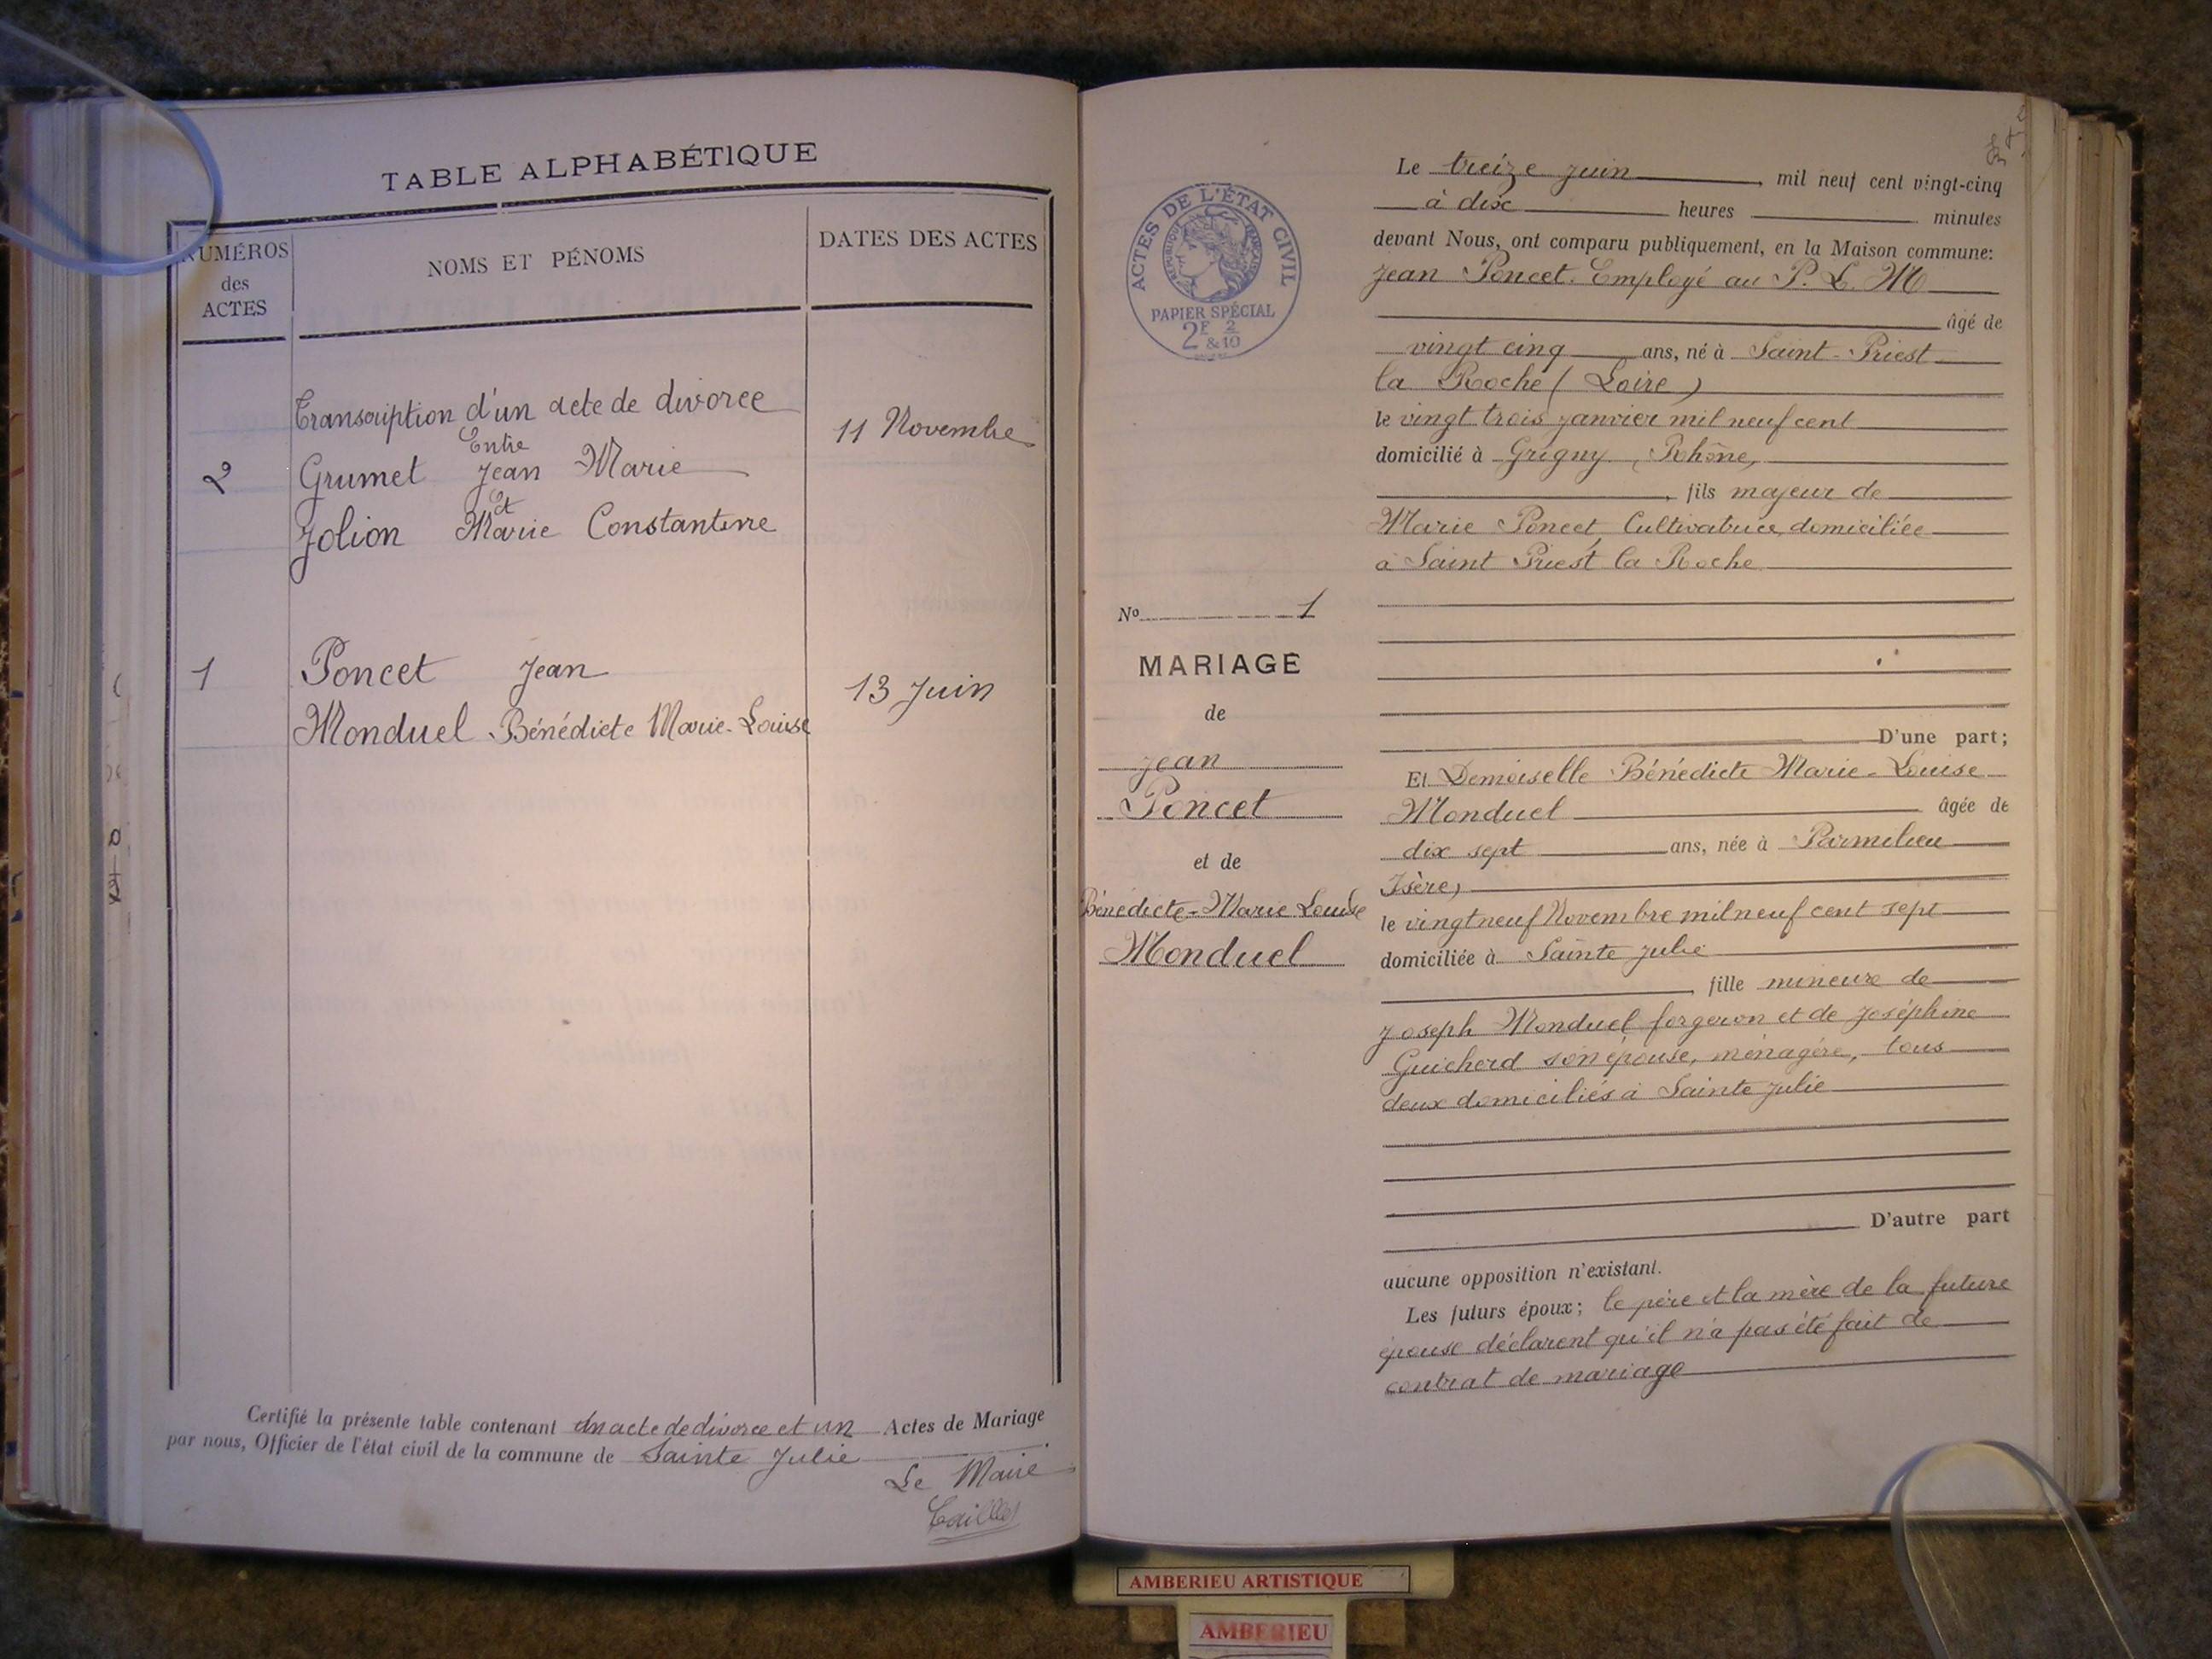 TABLE ALPHABÉTIQUE
NUMÉROS
des
ACTES
NOMS ET PÉNOMS
DATES DES ACTES
Transcription d'un acte de divorce
Entre
11 Novembre
2 Grumet Jean Marie
Et
Jolion Marie Constantine
1 Poncet Jean
13 Juin
Monduel Bénédicte Marie-Louise
Certifié la présente table contenant un acte de divorce et un Actes de Mariage
par nous, Officier de l'état civil de la commune de Sainte Julie
Le Maire
ACTES DE L'ÉTAT CIVIL
RÉPUBLIQUE FRANÇAISE
PAPIER SPÉCIAL
2F & 2/10
No 1
MARIAGE
de
Jean
Poncet
et de
Bénédicte-Marie Louise
Monduel
Le treize juin mil neuf cent vingt-cinq
à dix heures minutes
devant Nous, ont comparu publiquement, en la Maison commune:
Jean Poncet. Employé au P. L. M
âgé de
vingt cinq ans, né à Saint-Priest
la Roche (Loire)
le vingt trois janvier mil neuf cent
domicilié à Grigny, Rhône,
fils majeur de
Marie Poncet, Cultivatrice, domiciliée
à Saint Priest la Roche
D'une part;
Et Demoiselle Bénédicte Marie-Louise
Monduel âgée de
dix sept ans, née à Parmilieu
Isère,
le vingt neuf Novembre mil neuf cent sept
domiciliée à Sainte Julie
fille mineure de
Joseph Monduel forgeron et de Joséphine
Guicherd son épouse, ménagère, tous
deux domiciliés à Sainte Julie
D'autre part
aucune opposition n'existant.
Les futurs époux; le père et la mère de la future
épouse déclarent qu'il n'a pas été fait de
contrat de mariage
AMBERIEU ARTISTIQUE
AMBERIEU